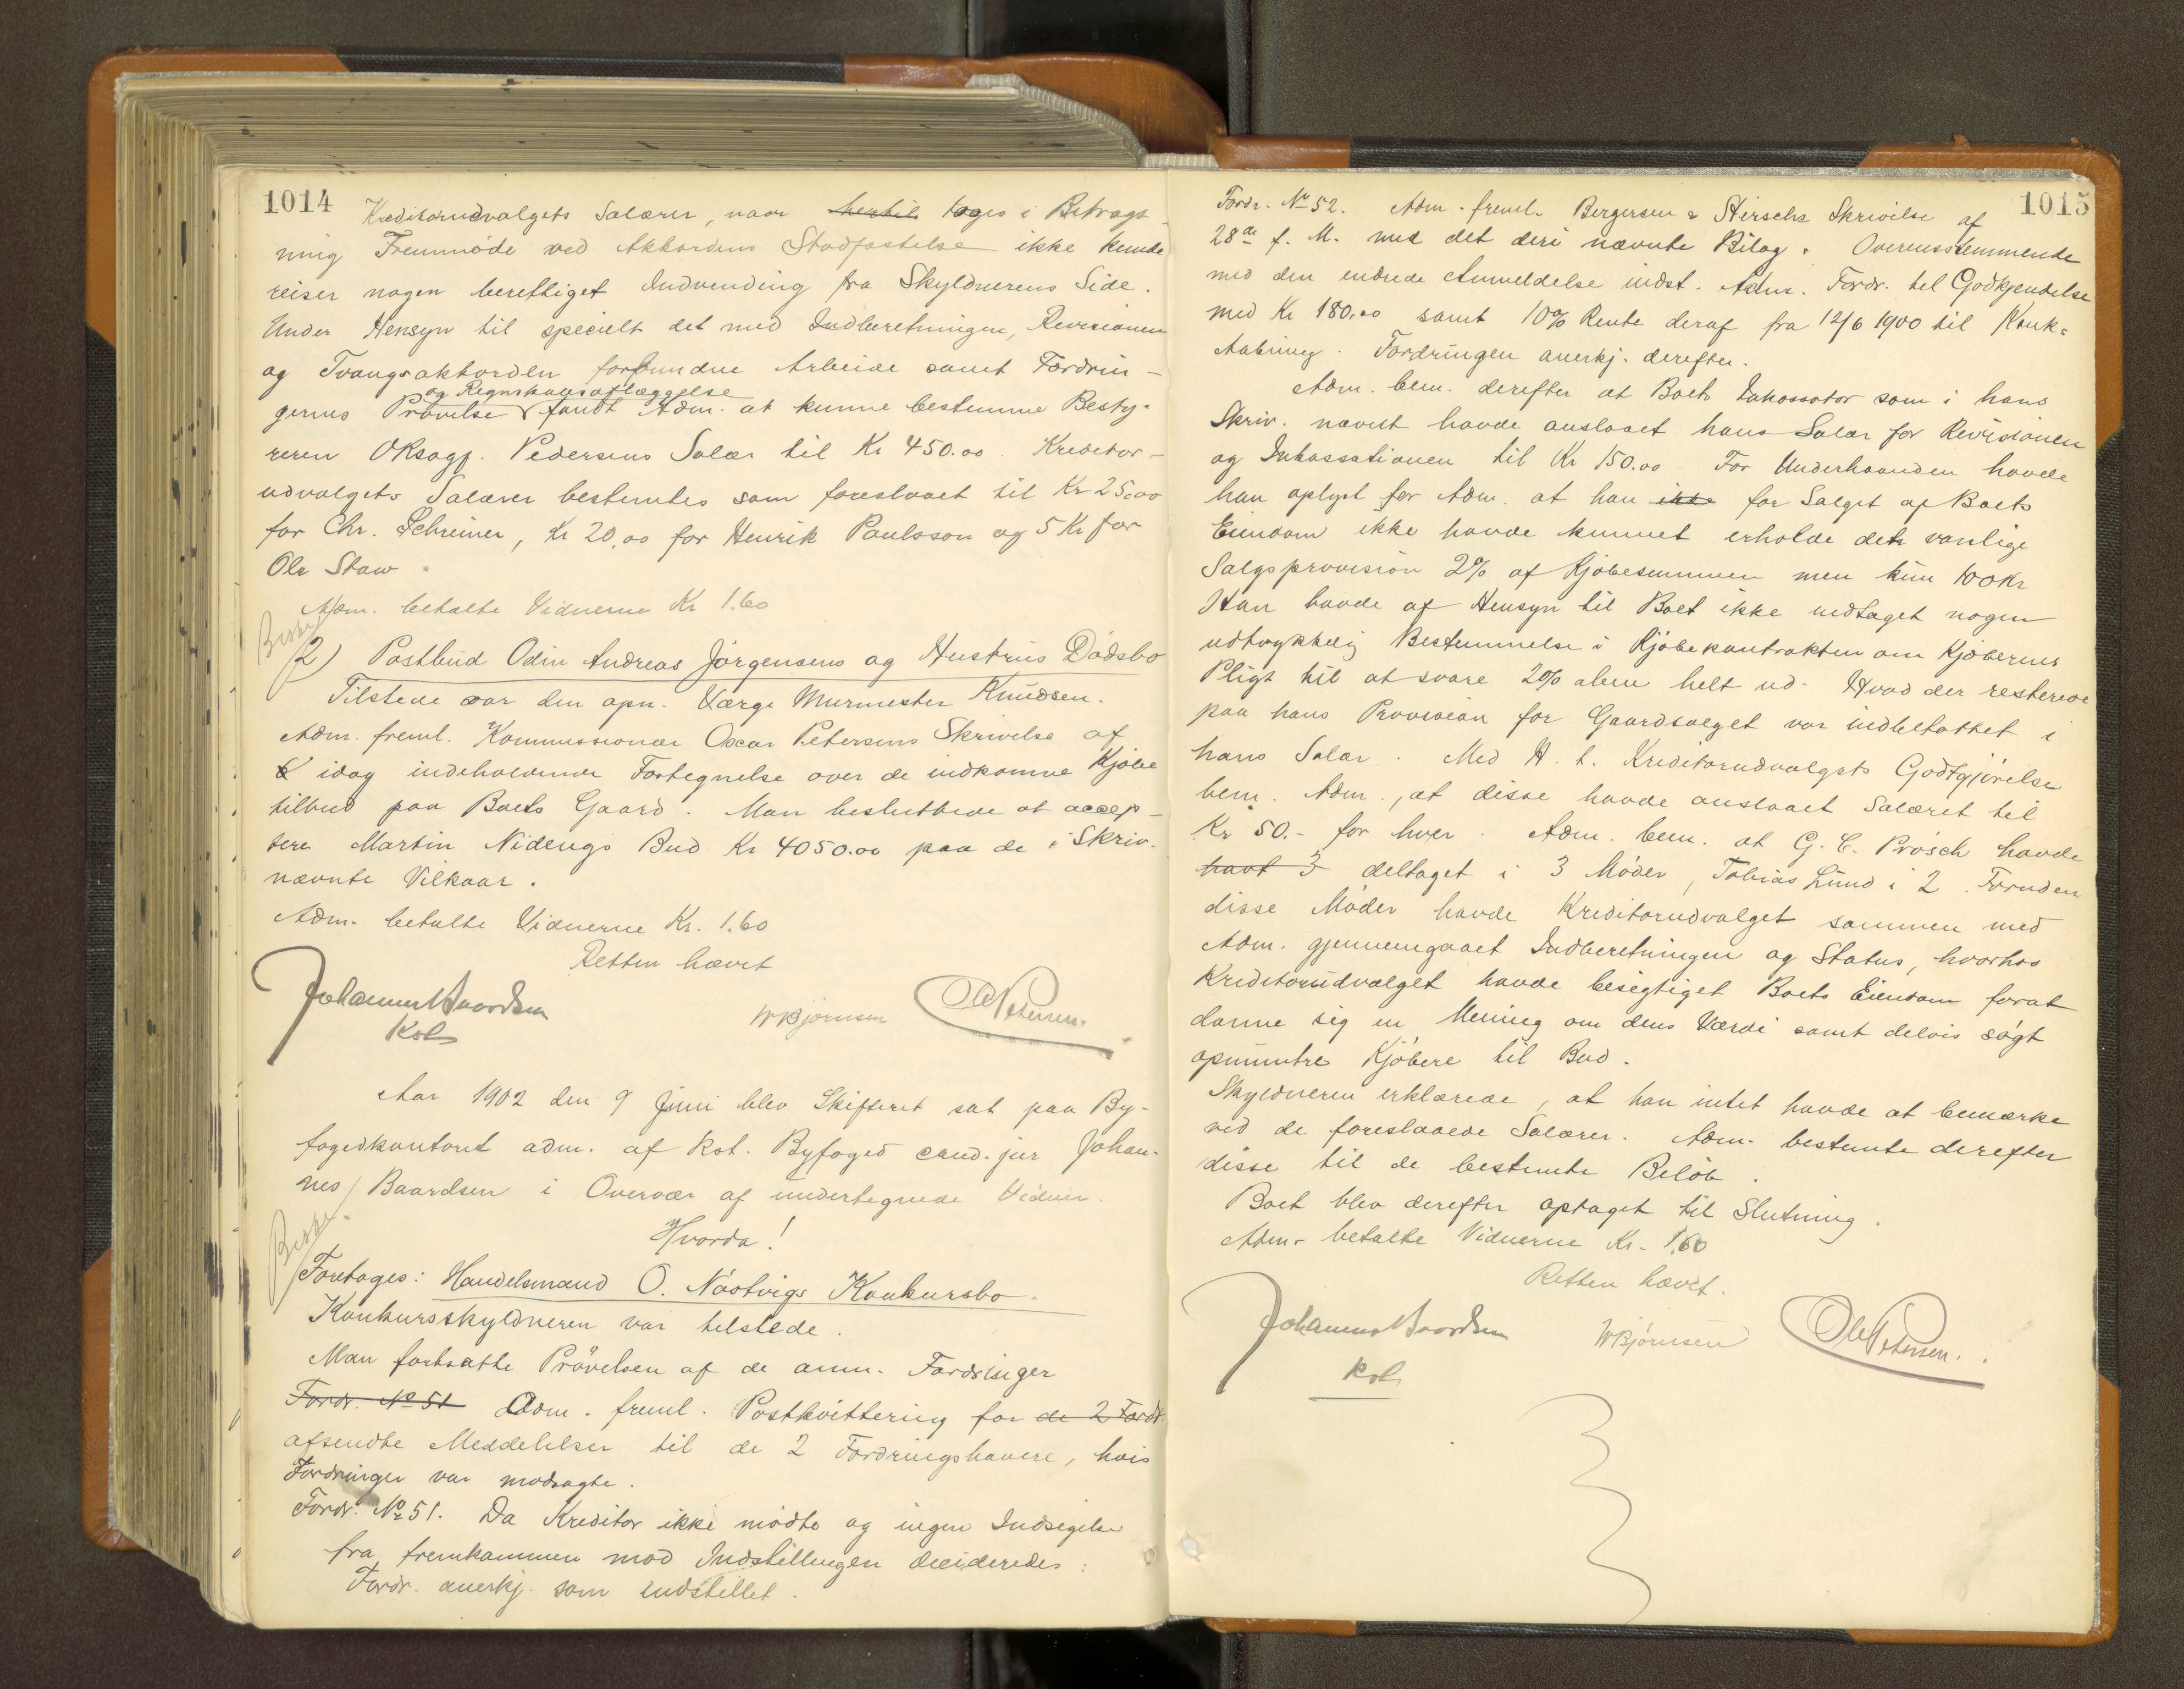 1014
Kreditorudvalgets Salærer, naar hertil toges i Betragt-
ning Fremmøde ved Akkordens Stadfæstelse ikke kunde
reises nogen berettiget Indvending fra Skyldnerens Side.
Under Hensyn til specielt det med Indberetningen, Revisionen
og Tvangsakkorden forbundne Arbeide samt Fordrin-
og Regnskabsaflæggelse
gernes Prøvelse fandt Adm. at kunne bestemme Besty-
reren ORsagf. Pedersens Salær til Kr 450.00. Kreditor-
udvalgets Salærer bestemtes som foreslaaet til Kr 25,00
for Chr. Schreiner, Kr 20,00 for Henrik Paulsson og 5 Kr for
Ole Staw.
Adm. betalte Vidnerne Kr 1.60
2) Postbud Odin Andreas Jørgensens og Hustrus Dødsbo
Tilstede var den opn. Værge Murmester Knudsen.
Adm. freml. Kommissionær Oscar Petersens Skrivelse af
idag indeholdende Fortegnelse over de indkomne Kjøbe
tilbud paa Boets Gaard. Man besluttede at accep-
tere Martin Nidengs Bud Kr 4050.00 paa de i Skriv.
nævnte Vilkaar.
Adm. betalte Vidnerne Kr. 1.60
Retten hævet
Johannes Baardsen
Kst
W Bjørnsen
Ole Petersen.
Aar 1902 den 9 Juni blev Skifteret sat paa By-
fogedkontoret adm. af kst. Byfoged cand. jur Johan-
nes Baardsen i Overvær af undertegnede Vidner.
Hvorda!
Foretoges: Handelsmand O. Nøstvigs Konkursbo.
Konkursskyldneren var tilstede.
Man fortsatte Prøvelsen af de anm. Fordringer
Fordr. No 51 Adm. freml. Postkvittering for de 2 Fordr.
afsendte Meddelelser til de 2 Fordringshavere, hvis
Fordringer var modsagte.
Fordr. No 51. Da Kreditor ikke mødte og ingen Indsigelse
fra fremkommen mod Indstillingen decideredes:
Fordr. anerkj. som indstillet.
1015
Fordr. No 52. Adm. freml. Bergersen & Hirschs Skrivelse af
28de f. M. med det deri nævnte Bilag. Overensstemmende
med den endrede Anmeldelse indst. Adm. Fordr. til Godkjendelse
med Kr 180,00 samt 10% Rente deraf fra 12/6 1900 til Konk-
Aabning. Fordringen anerkj. derefter.
Adm. bem. derefter at Boets Inkassator som i hans
Skriv. nævnt havde anslaaet hans Salær for Revisionen
og Inkassationen til Kr 150.00. For Underhaanden havde
han oplyst for Adm. at han ikke for Salget af Boets
Eiendom ikke havde kunnet erholde den vanlige
Salgsprovision 2% af Kjøbesummen men kun 100 Kr
Han havde af Hensyn til Boet ikke indtaget nogen
udtrykkelig Bestemmelse i Kjøbekontrakten om Kjøberens
Pligt til at svare 2% alene helt ud. Hvad der resterede
paa hans Provision for Gaardsalget var indbefattet i
hans Salær. Med H. t. Kreditorudvalgets Godtgjørelse
bem. Adm., at disse havde anslaaet Salæret til
Kr 50.- for hver. Adm. bem. at G. C. Prøsch havde
havt 3 deltaget i 3 Møder, Tobias Lund i 2. Foruden
disse Møder havde Kreditorudvalget sammen med
Adm. gjennemgaaet Indberetningen og Status, hvorhos
Kreditorudvalget havde besigtiget Boets Eiendom forat
danne sig en Mening om dens Værdi samt delvis søgt
opmuntre Kjøbere til Bud.
Skyldneren erklærede, at han intet havde at bemærke
ved de foreslaaede Salærer. Adm. bestemte derefter
disse til de bestemte Beløb.
Boet blev derefter optaget til Slutning.
Adm. betalte Vidnerne Kr. 1,60
Retten hævet.
Johannes Baardsen
Kst
W Bjørnsen
Ole Petersen.